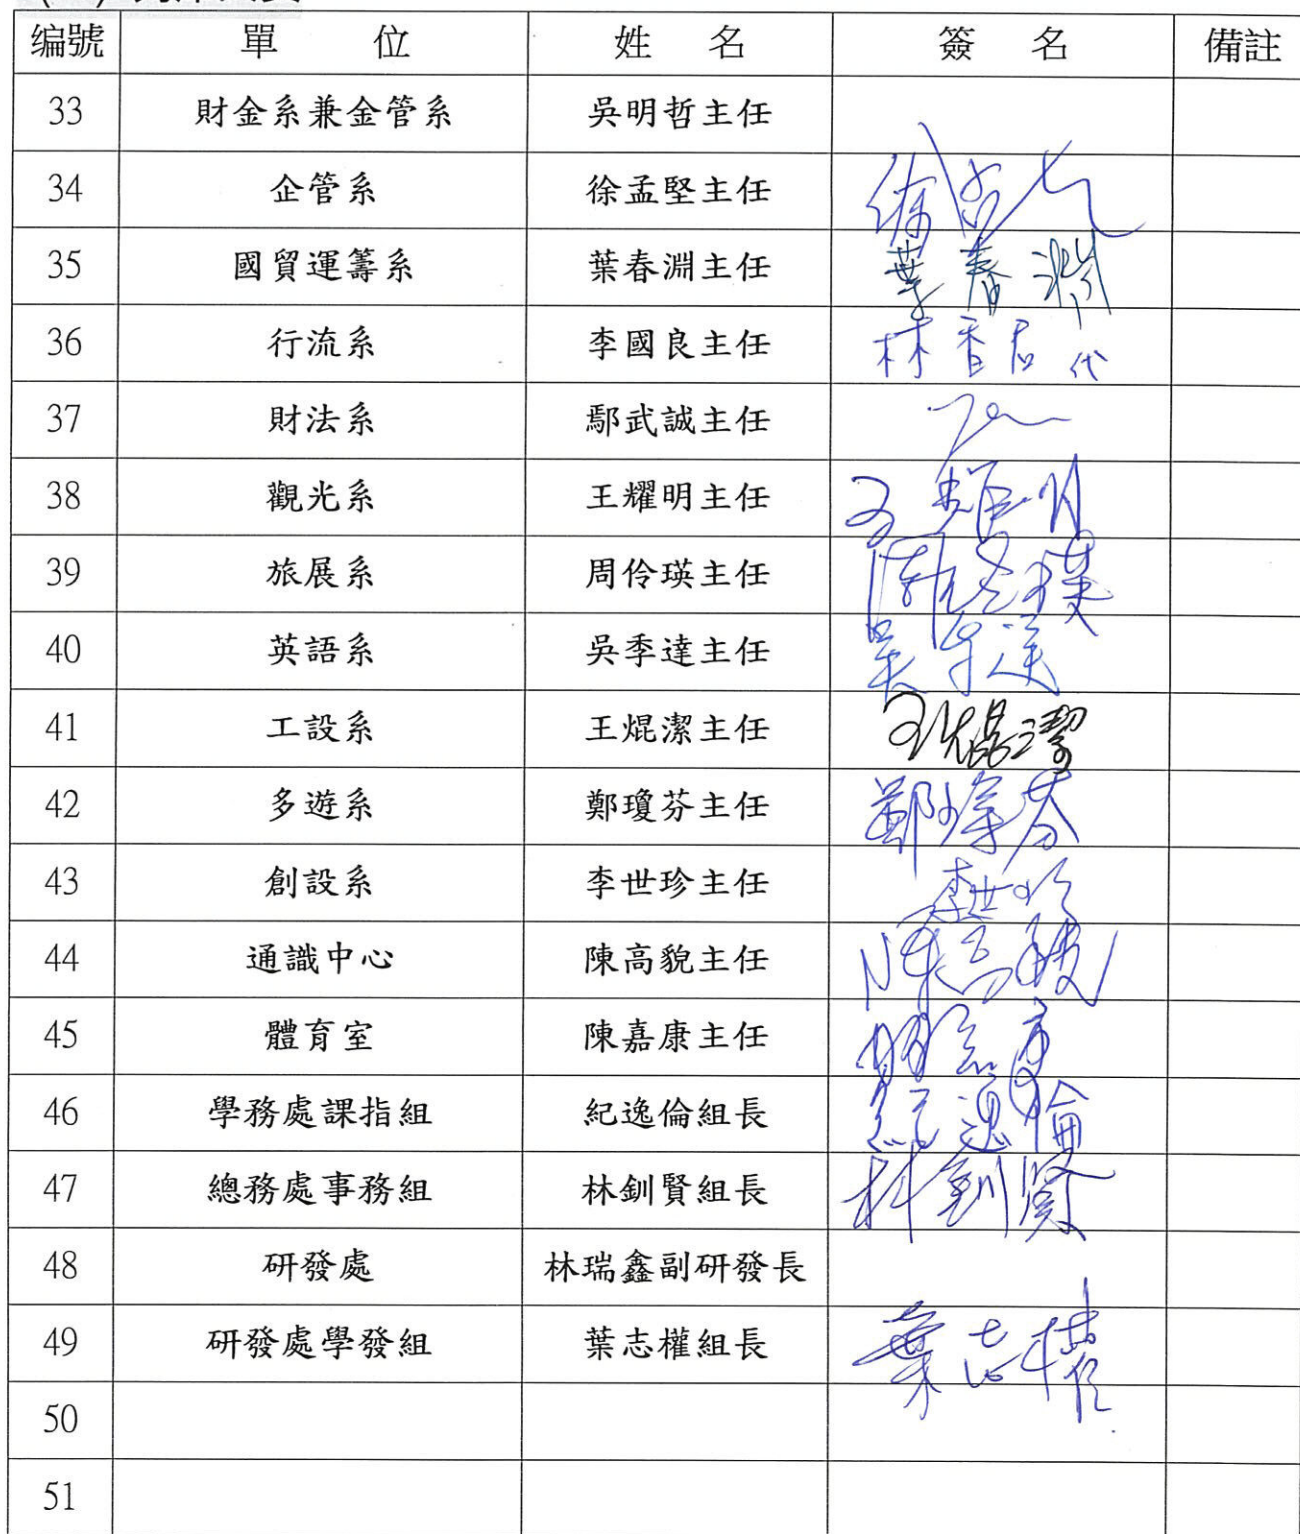 编號 單 位 姓 名 簽 名 備註
33 財金系兼金管系 吳明哲主任
34 企管系 徐孟堅主任
35 國貿運籌系 葉春淵主任 葉春淵
36 行流系 李國良主任 林香君代
37 財法系 鄢武誠主任
38 觀光系 王耀明主任 王耀明
39 旅展系 周伶瑛主任
40 英語系 吳季達主任 吳季達
41 工設系 王焜潔主任 王焜潔
42 多遊系 鄭瓊芬主任 鄭瓊芬
43 創設系 李世珍主任 李世珍
44 通識中心 陳高貌主任 陳高貌
45 體育室 陳嘉康主任
46 學務處課指組 紀逸倫組長 紀逸倫
47 總務處事務組 林釧賢組長 林釧賢
48 研發處 林瑞鑫副研發長
49 研發處學發組 葉志權組長 葉志權
50
51